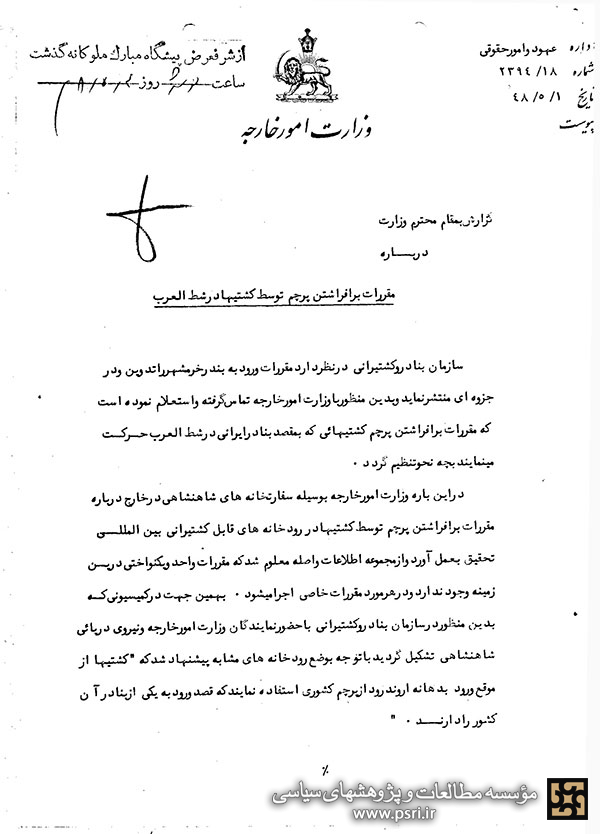 اداره عهود و امور حقوقی
شماره ۲۳۹۴/۱۸
تاریخ ۴۸/۵/۱
پیوست
از شرفعرض پیشگاه مبارک ملوکانه گذشت
ساعت روز
وزارت امور خارجه
گزارش بمقام محترم وزارت
درباره
مقررات برافراشتن پرچم توسط کشتیها در شط العرب
سازمان بنادر و کشتیرانی در نظر دارد مقررات ورود به بندر خرمشهر را تدوین و در
جزوه ای منتشر نماید و بدین منظور با وزارت امور خارجه تماس گرفته و استعلام نموده است
که مقررات برافراشتن پرچم کشتیهائی که بمقصد بنادر ایرانی در شط العرب حرکت
مینمایند بچه نحو تنظیم گردد ۰
در این باره وزارت امور خارجه بوسیله سفارتخانه های شاهنشاهی در خارج درباره
مقررات برافراشتن پرچم توسط کشتیها در رودخانه های قابل کشتیرانی بین المللی
تحقیق بعمل آورد و از مجموعه اطلاعات واصله معلوم شد که مقررات واحد و یکنواختی در این
زمینه وجود ندارد و در هر مورد مقررات خاصی اجرا میشود ۰ بهمین جهت در کمیسیونی که
بدین منظور در سازمان بنادر و کشتیرانی با حضور نمایندگان وزارت امور خارجه و نیروی دریائی
شاهنشاهی تشکیل گردید با توجه بوضع رودخانه های مشابه پیشنهاد شد که "کشتیها از
موقع ورود بدهانه اروند رود از پرچم کشوری استفاده نمایند که قصد ورود به یکی از بنادر آن
کشور را دارند ۰ "
٪
مؤسسه مطالعات و پژوهشهای سیاسی
www.psri.ir